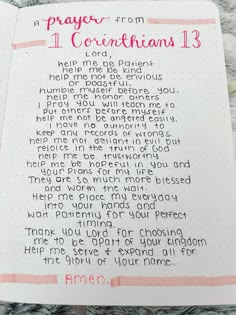 a prayer from
1 Corinthians 13
Lord,
help me be patient
help me be kind
help me not be envious
or boastful.
Humble myself before you.
help me honor others
I pray you will teach me to
put others before myself
help me not be angered easily.
I have no authority to
keep any records of wrongs.
help me not delight in evil but
rejoice in the truth of God
help me be trustworthy
help me be hopeful in you and
your plans for my life
They are so much more blessed
and worth the wait.
Help me place my everyday
into your hands and
wait patiently for your perfect
timing.
Thank you Lord for choosing
me to be apart of your kingdom
Help me serve + expand all for
the glory of your name.
Amen.